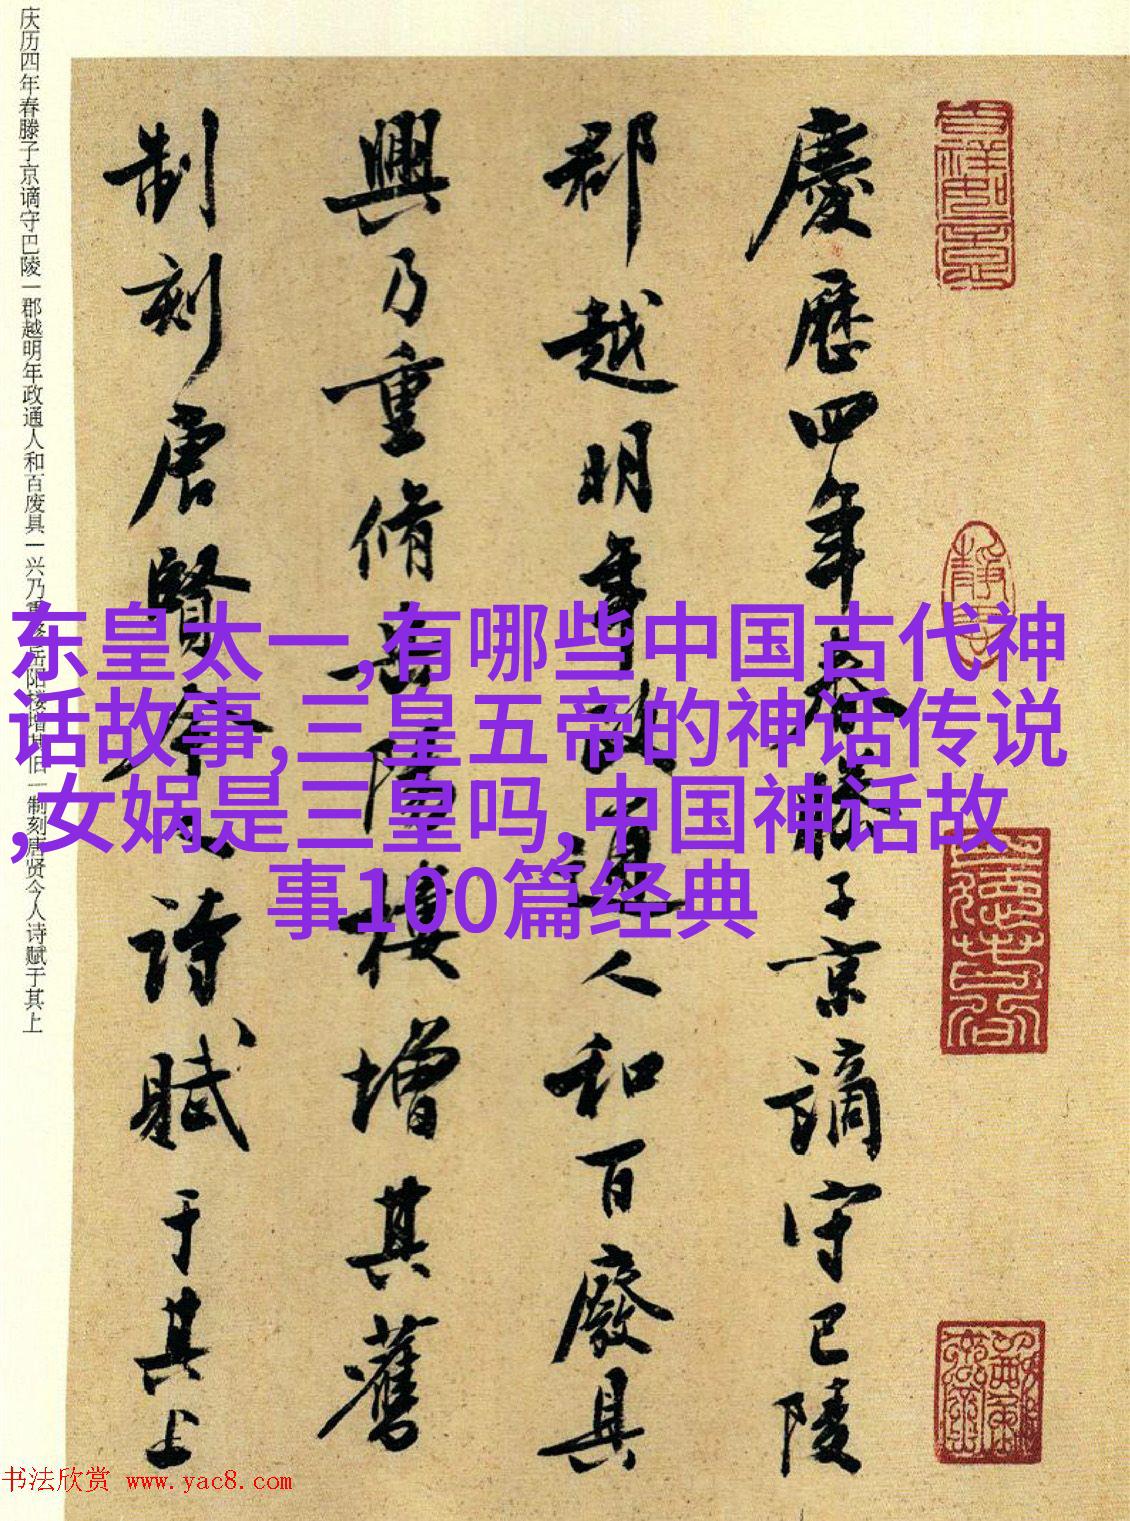 庆历四年春滕子京谪守巴陵一郡越明年政通人和百废具一兴乃重修岳阳楼增其旧一制刻唐贤今人诗赋于其上
慶歷四年春滕子京謫守巴陵
郡越明年政通人和百廢具
興乃重脩岳陽樓增其舊
制刻唐賢今人詩賦于其上
东皇太一,有哪些中国古代神
话故事,三皇五帝的神话传说
,女娲是三皇吗,中国神话故
事100篇经典
书法欣赏 www.yac8.com